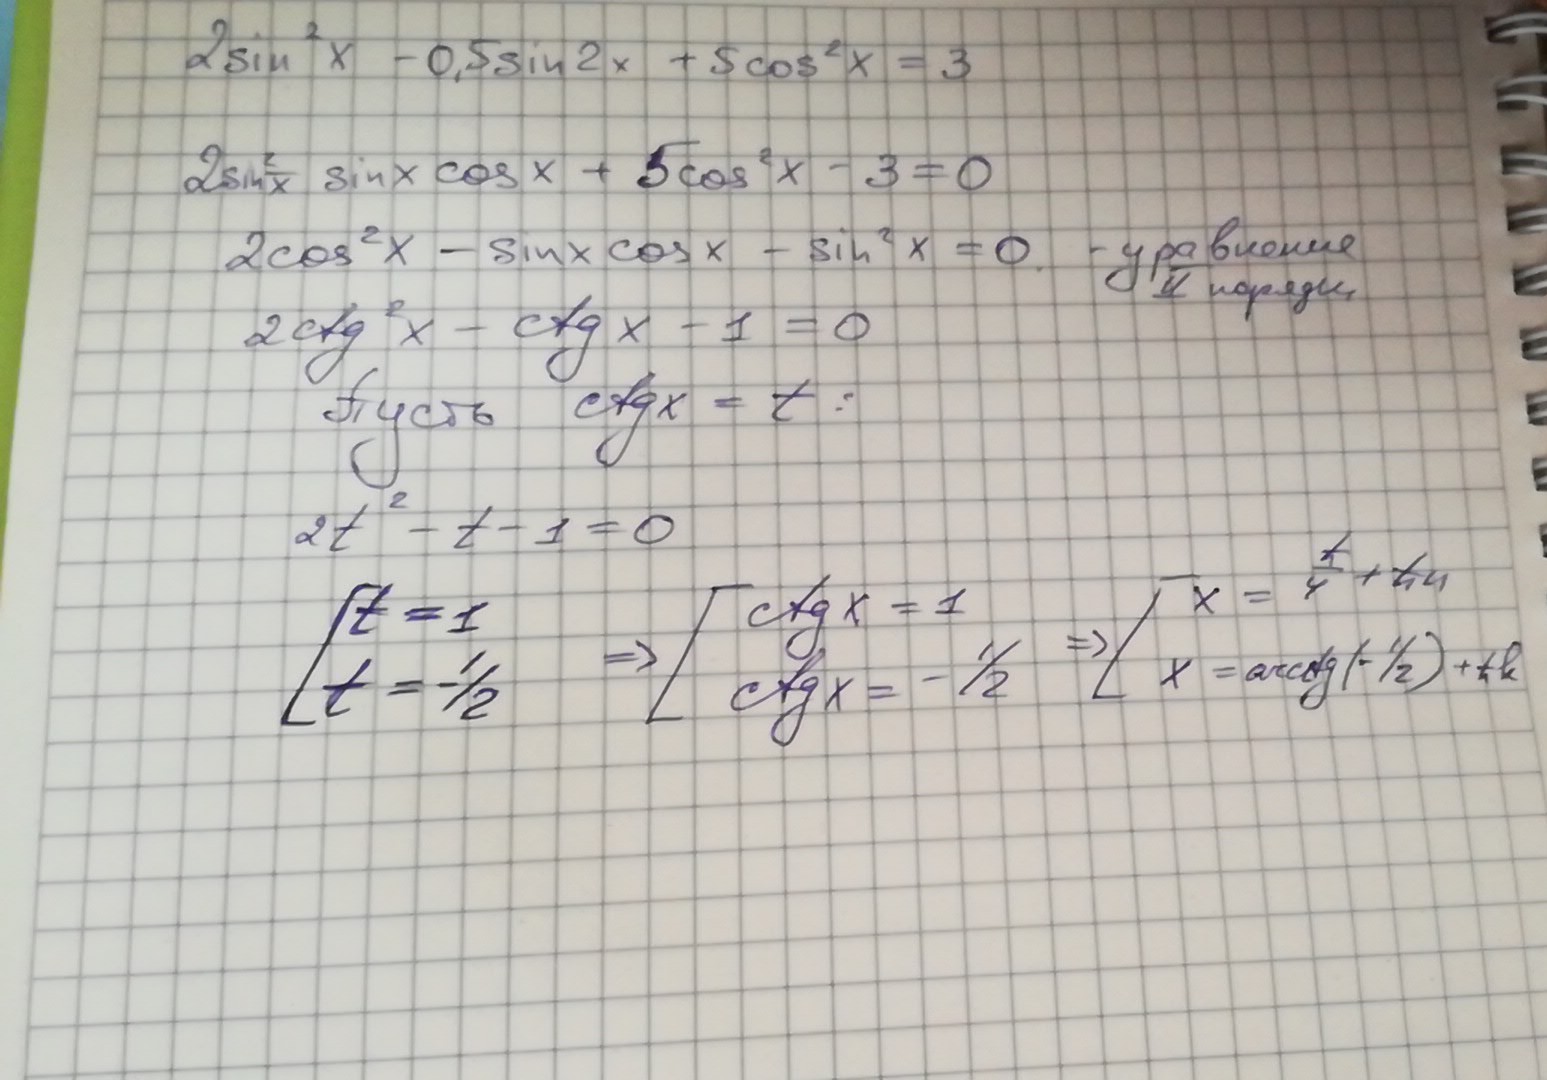 2sin²x - 0,5sin2x + 5cos²x = 3
2sin²x sinx cosx + 5cos²x - 3 = 0
2cos²x - sinx cosx - sin²x = 0 - уравнение
II порядк.
2ctg²x - ctgx - 1 = 0
Пусть ctgx = t :
2t² - t - 1 = 0
[ t = 1 => [ ctgx = 1 => [ x = π/4 + πn
t = -1/2 ctgx = -1/2 x = arcctg(-1/2) + πk